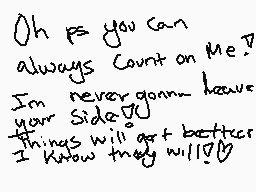 Oh ps you can
always count on me!
Im never gonna leave
your side♡!
Things will get better
I know they will♡!♡